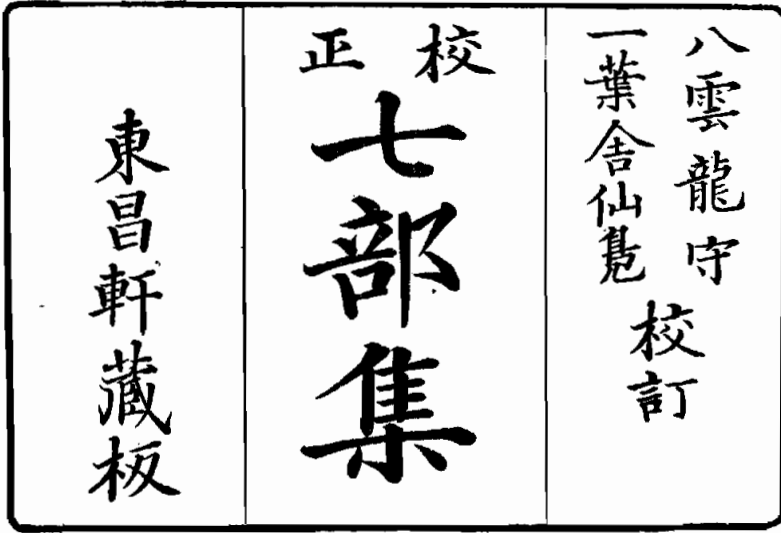 八雲龍守
一葉舎仙鳧
校訂
校正
七部集
東昌軒藏板